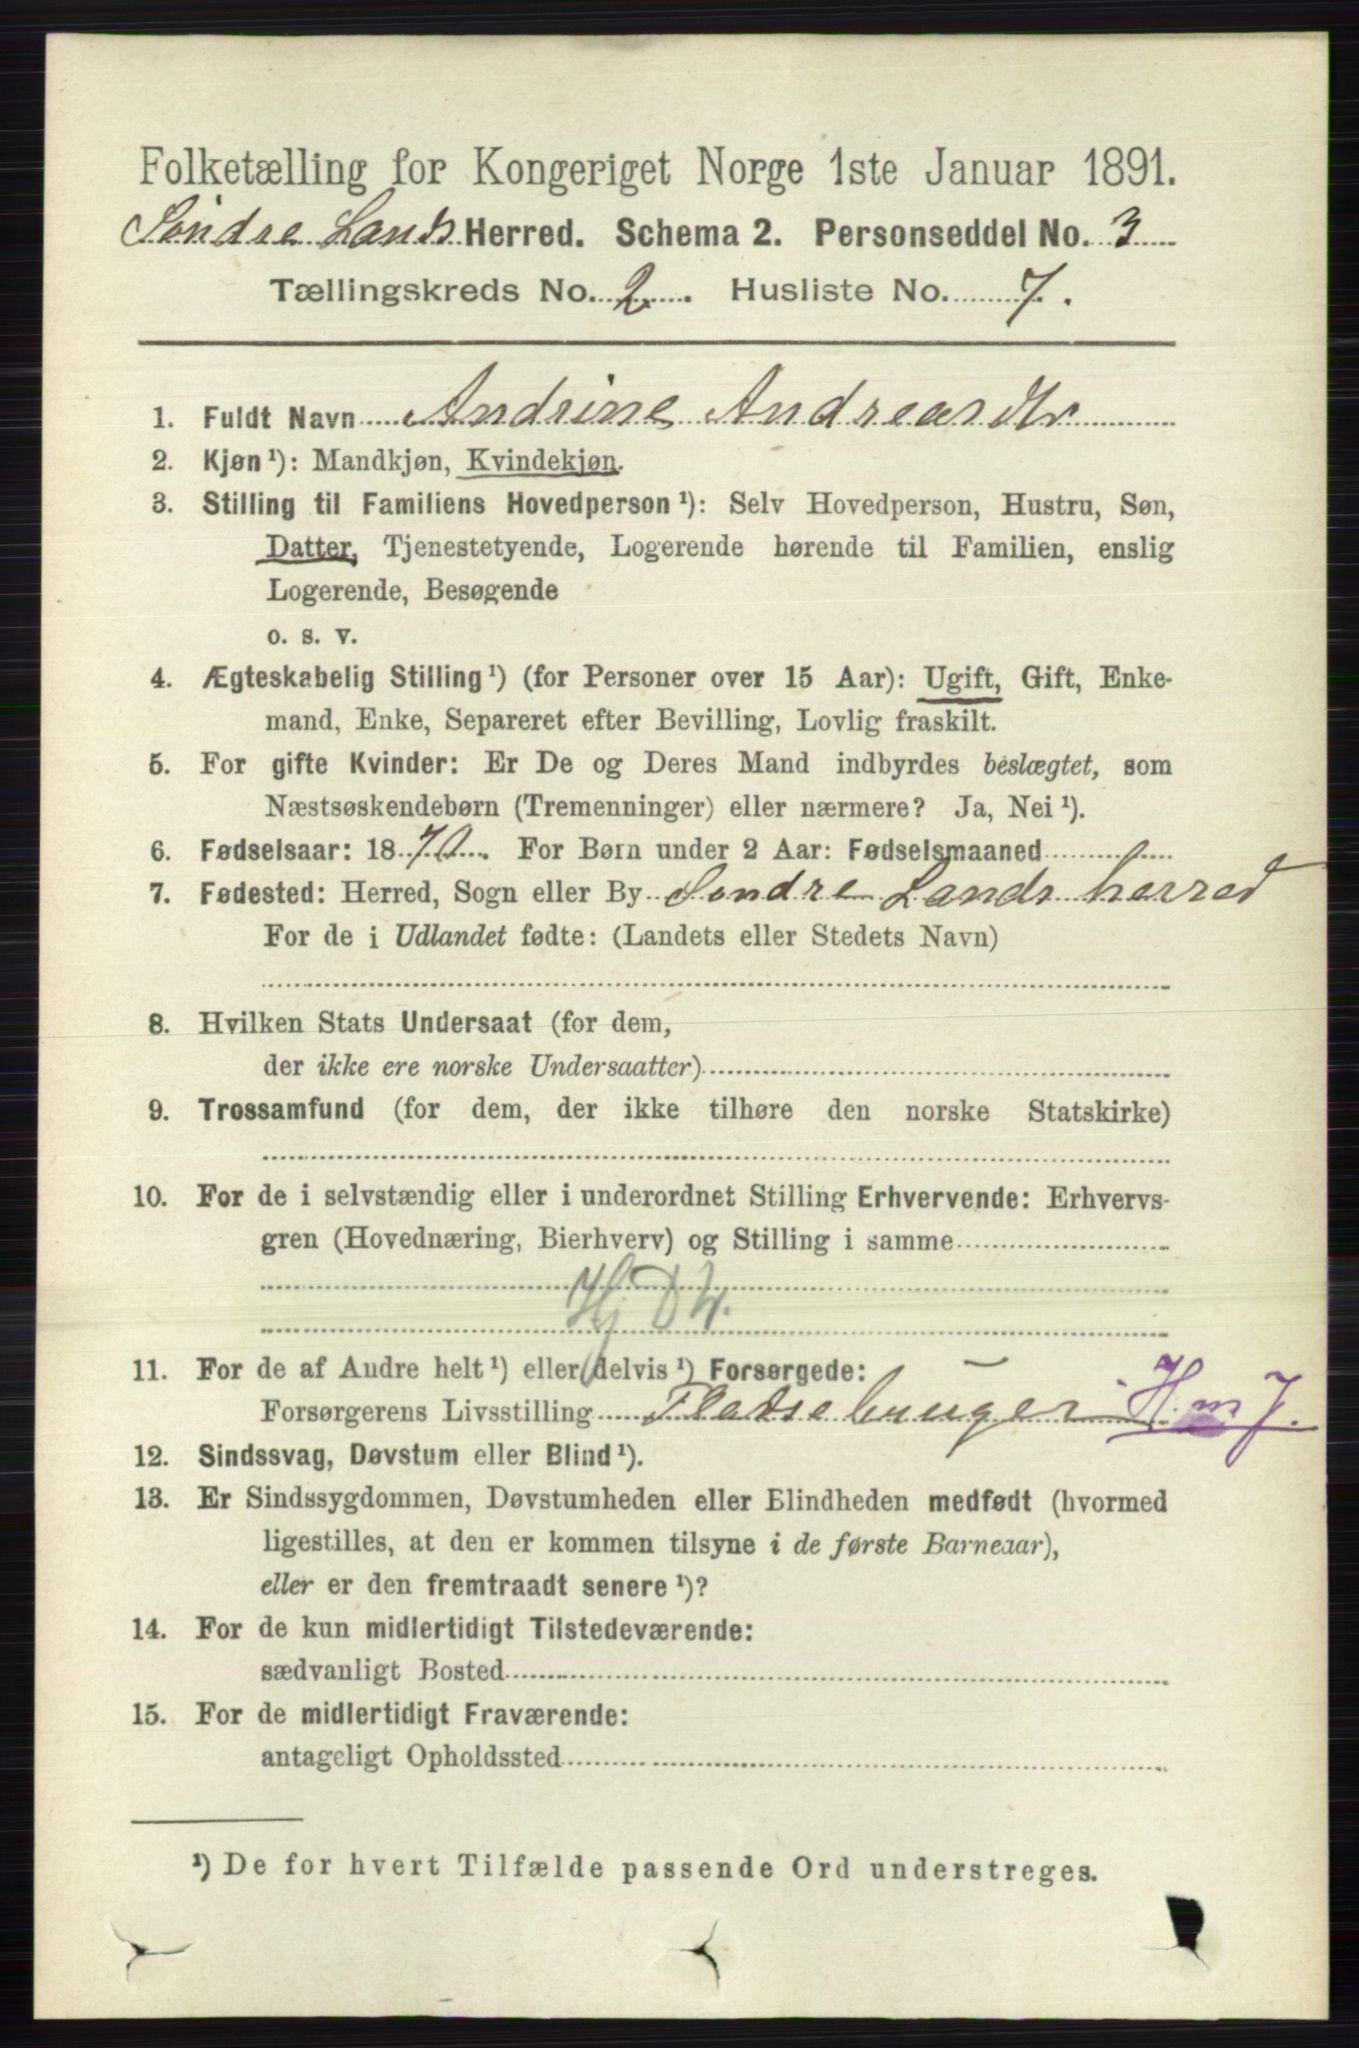 Folketælling for Kongeriget Norge 1ste Januar 1891.
Söndre Lands Herred. Schema 2. Personseddel No. 3
Tællingskreds No. 2. Husliste No. 7.
1. Fuldt Navn Andrine Andreasdtr
2. Kjøn¹): Mandkjøn, Kvindekjøn.
3. Stilling til Familiens Hovedperson¹): Selv Hovedperson, Hustru, Søn,
Datter, Tjenestetyende, Logerende hørende til Familien, enslig
Logerende, Besøgende
o. s. v.
4. Ægteskabelig Stilling¹) (for Personer over 15 Aar): Ugift, Gift, Enke-
mand, Enke, Separeret efter Bevilling, Lovlig fraskilt.
5. For gifte Kvinder: Er De og Deres Mand indbyrdes beslægtet, som
Næstsøskendebørn (Tremenninger) eller nærmere? Ja, Nei¹).
6. Fødselsaar: 1870. For Børn under 2 Aar: Fødselsmaaned
7. Fødested: Herred, Sogn eller By Sondre Lands herred
For de i Udlandet fødte: (Landets eller Stedets Navn)
8. Hvilken Stats Undersaat (for dem,
der ikke ere norske Undersaatter)
9. Trossamfund (for dem, der ikke tilhøre den norske Statskirke)
10. For de i selvstændig eller i underordnet Stilling Erhvervende: Erhvervs-
gren (Hovednæring, Bierhverv) og Stilling i samme
11. For de af Andre helt¹) eller delvis¹) Forsørgede:
Forsørgerens Livsstilling H. m J.
12. Sindssvag, Døvstum eller Blind¹).
13. Er Sindssygdommen, Døvstumheden eller Blindheden medfødt (hvormed
ligestilles, at den er kommen tilsyne i de første Barneaar),
eller er den fremtraadt senere¹)?
14. For de kun midlertidigt Tilstedeværende:
sædvanligt Bosted
15. For de midlertidigt Fraværende:
antageligt Opholdssted
¹) De for hvert Tilfælde passende Ord understreges.